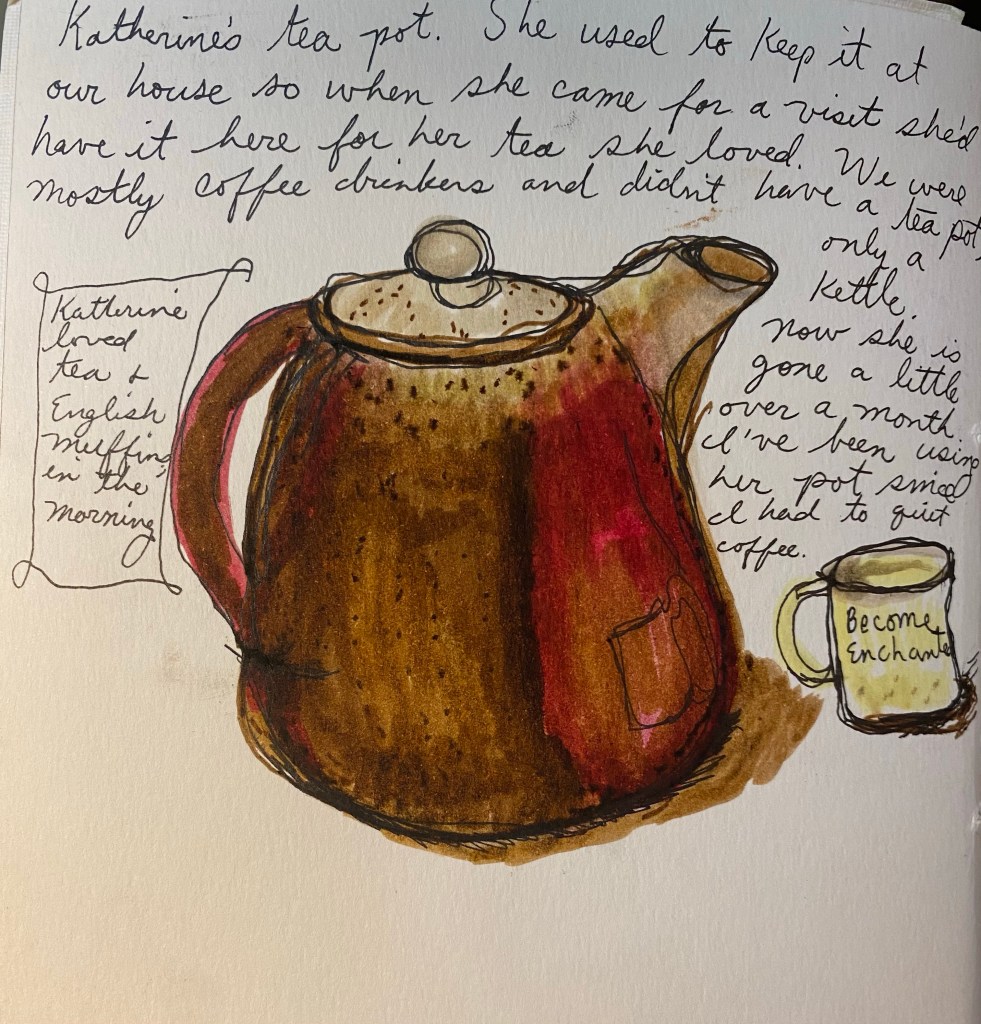 Katherine's tea pot. She used to keep it at
our house so when she came for a visit she'd
have it here for her tea she loved. We were
mostly coffee drinkers and didn't have a tea pot,
only a
kettle.
Now she is
gone a little
over a month.
I've been using
her pot since
I had to quit
coffee.
Katherine
loved
tea &
English
muffins
in the
morning
Become
Enchanted